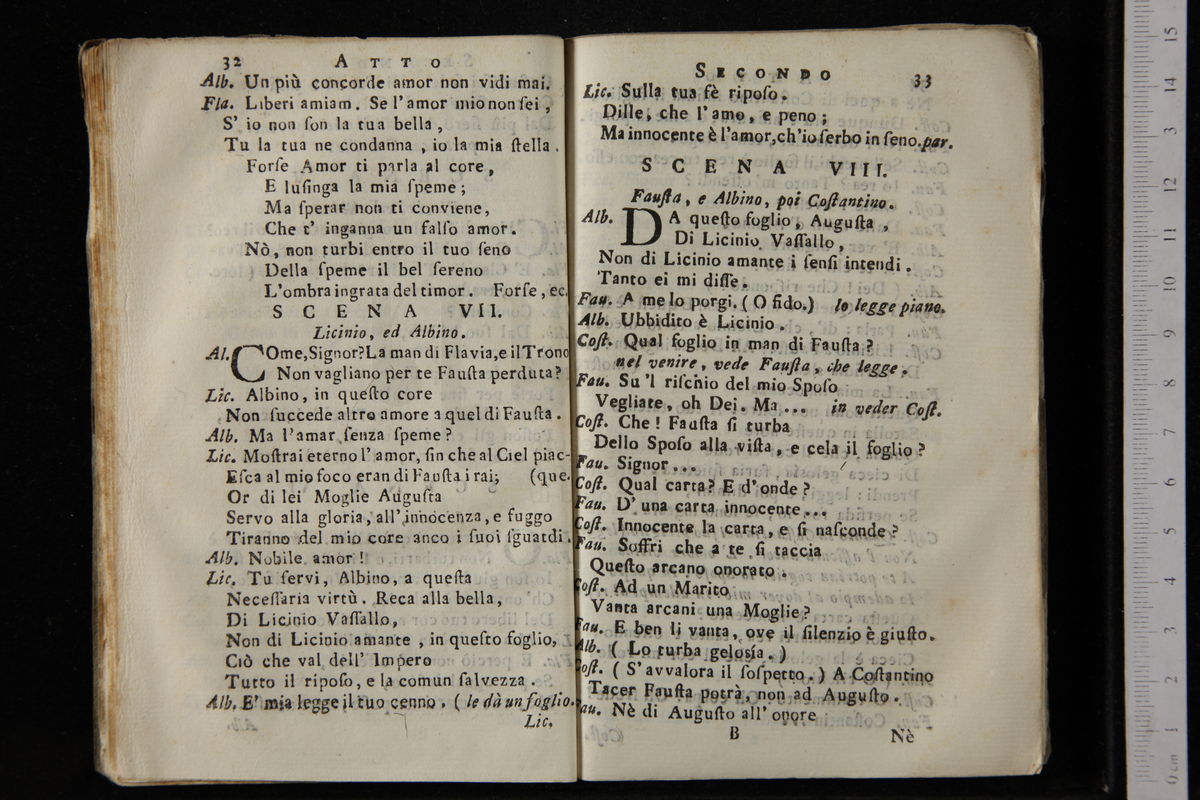 32 ATTO
Alb. Un più concorde amor non vidi mai.
Fla. Liberi amiam. Se l'amor mio non ſei,
S' io non ſon la tua bella,
Tu la tua ne condanna, io la mia ſtella.
Forſe Amor ti parla al core,
E luſinga la mia ſpeme;
Ma ſperar non ti conviene,
Che t' inganna un falſo amor.
Nò, non turbi entro il tuo ſeno
Della ſpeme il bel ſereno
L'ombra ingrata del timor. Forſe, ec.
SCENA VII.
Licinio, ed Albino.
Al. COme, Signor? La man di Flavia, e il Trono
Non vagliano per te Fauſta perduta?
Lic. Albino, in queſto core
Non ſuccede altro amore a quel di Fauſta.
Alb. Ma l'amar ſenza ſpeme?
Lic. Moſtrai eterno l' amor, ſin che al Ciel piac-
Eſca al mio foco eran di Fauſta i rai; (que.
Or di lei Moglie Auguſta
Servo alla gloria, all' innocenza, e fuggo
Tiranno del mio core anco i ſuoi ſguardi.
Alb. Nobile amor!
Lic. Tu ſervi, Albino, a queſta
Neceſſaria virtù. Reca alla bella,
Di Licinio Vaſſallo,
Non di Licinio amante, in queſto foglio,
Ciò che val dell' Impero
Tutto il ripoſo, e la comun ſalvezza.
Alb. E' mia legge il tuo cenno. (le dà un foglio.
Lic.
SECONDO 33
Lic. Sulla tua fè ripoſo.
Dille, che l'amo, e peno;
Ma innocente è l'amor, ch'io ſerbo in ſeno. par.
SCENA VIII.
Fauſta, e Albino, poi Coſtantino.
Alb. DA queſto foglio, Auguſta,
Di Licinio Vaſſallo,
Non di Licinio amante i ſenſi intendi.
Tanto ei mi diſſe.
Fau. A me lo porgi. (O fido.) lo legge piano.
Alb. Ubbidito è Licinio.
Coſt. Qual foglio in man di Fauſta?
nel venire, vede Fauſta, che legge.
Fau. Su 'l riſchio del mio Spoſo
Vegliate, oh Dei. Ma... in veder Coſt.
Coſt. Che! Fauſta ſi turba
Dello Spoſo alla viſta, e cela il foglio?
Fau. Signor...
Coſt. Qual carta? E d'onde?
Fau. D' una carta innocente...
Coſt. Innocente la carta, e ſi naſconde?
Fau. Soffri che a te ſi taccia
Queſto arcano onorato.
Coſt. Ad un Marito
Vanta arcani una Moglie?
Fau. E ben li vanta, ove il ſilenzio è giuſto.
Alb. (Lo turba geloſía.)
Coſt. (S' avvalora il ſoſpetto.) A Coſtantino
Tacer Fauſta potrà, non ad Auguſto.
Fau. Nè di Auguſto all' onore
B Nè